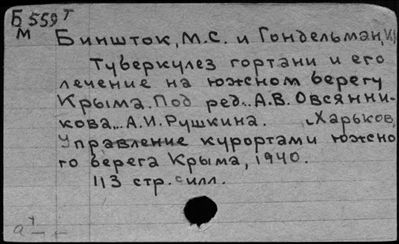 Б 559 Т
м
Биншток, М.С. и Гондельман,
Туберкулез гортани и его
лечение на южном берегу
Крыма. Под ред... А.В. Овсянни-
кова... А.И. Рушкина. Харьков,
Управление курортами южно-
го берега Крыма, 1940.
113 стр. с илл.